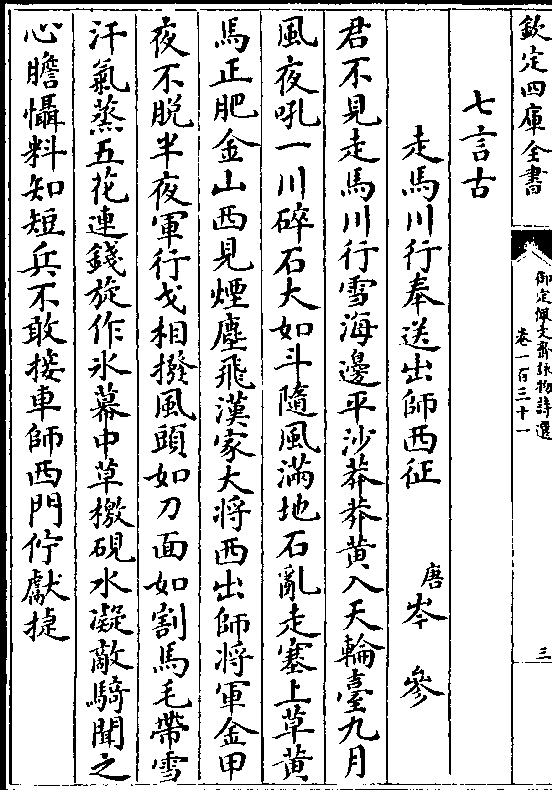 欽定四庫全書
御定佩文齋詠物詩選
卷一百三十一
三
七言古
走馬川行奉送出師西征 唐岑參
君不見走馬川行雪海邊平沙莽莽黃入天輪臺九月
風夜吼一川碎石大如斗隨風滿地石亂走塞上草黃
馬正肥金山西見煙塵飛漢家大將西出師將軍金甲
夜不脫半夜軍行戈相撥風頭如刀面如割馬毛帶雪
汗氣蒸五花連錢旋作氷幕中草檄硯水凝敵騎聞之
心膽懾料知短兵不敢接車師西門佇獻捷